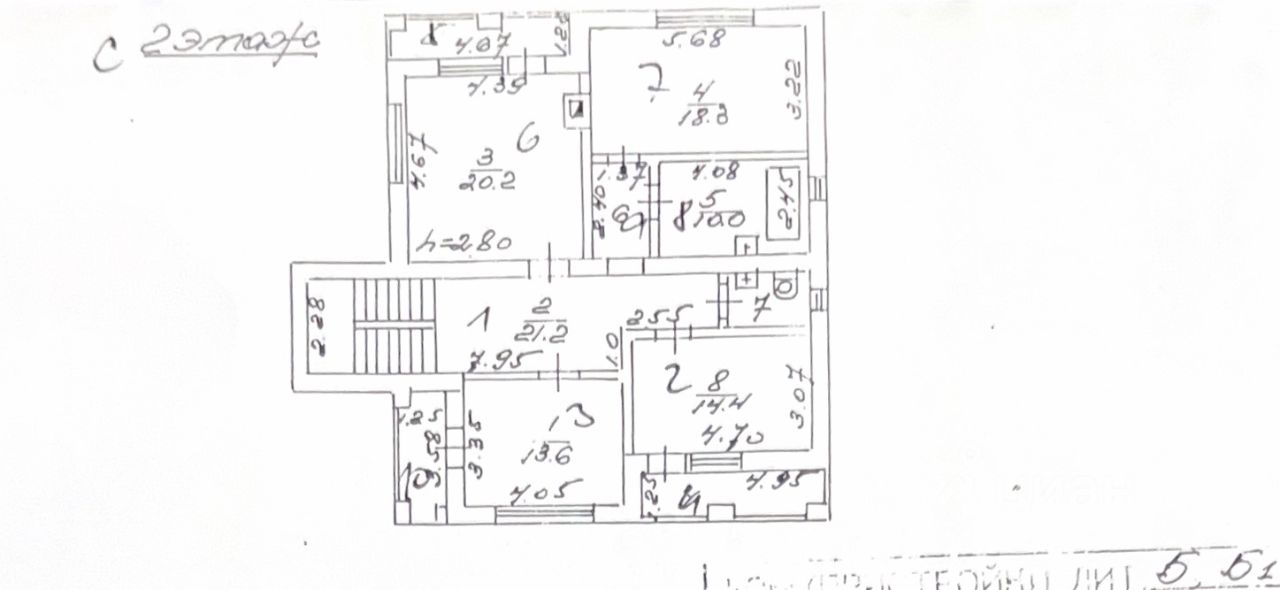 С 2 этаж
4.07
1.25
5.68
4.39
7
4
18.3
3.22
6
3
20.2
4.67
1.37
4.08
2.40
6а
8
5
10.0
2.45
h=2.80
2.28
1
2
21.2
2.55
7
7.95
1.0
2
8
14.4
3.07
4.70
1.25
3.58
3.35
3
1
13.6
4.05
4.95
1.25
ТРОЙКИ ЛИТ. Б, Б1